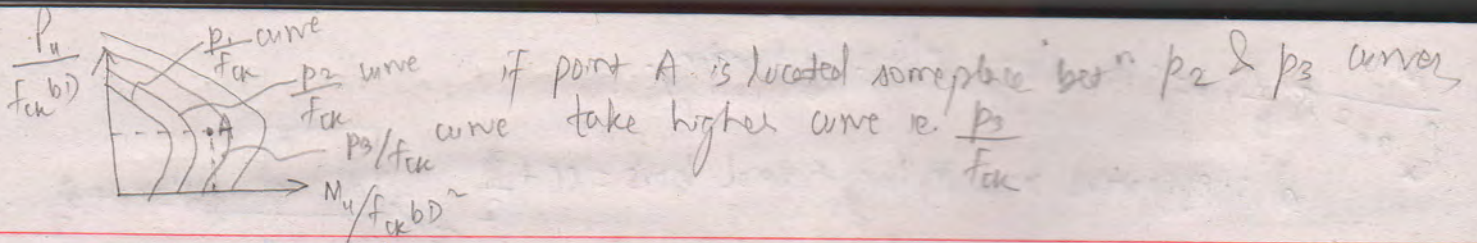 Pu/fck bD
p1/fck curve
p2/fck curve
p3/fck curve
A
Mu/fck bD²
if point A is located someplace betⁿ p2 & p3 curves
take higher curve ie. p3/fck